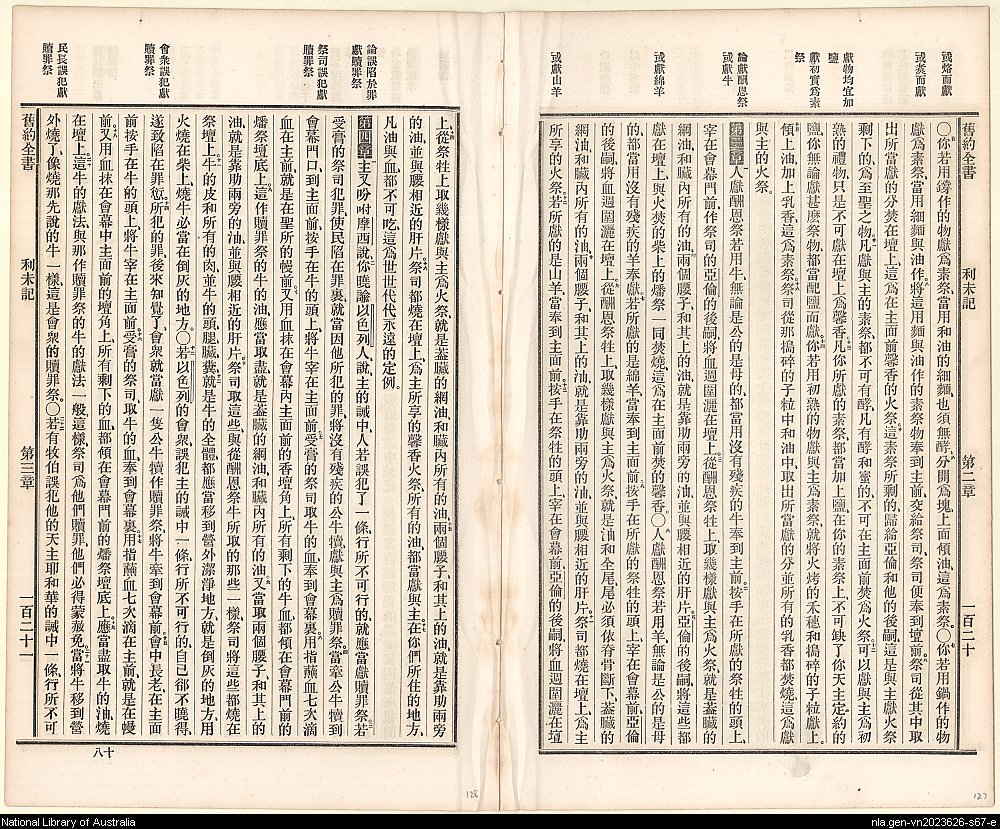 舊約全書 利未記 第二章 一百二十
或熖而獻
或煑而獻
獻物均宜加鹽
獻初實爲素祭
論獻酬恩祭或獻牛
或獻綿羊
或獻山羊
○你若用鏊作的物獻爲素祭、當用和油的細麵、也須無酵、分開爲塊、上面傾油、這爲素祭。○你若用鍋作的物
獻爲素祭、當用細麵與油作、將這用麵與油作的素祭物奉到主前、交給祭司、祭司便奉到壇前、祭司從其中取
出所當獻的分、焚在壇上、這爲在主面前馨香的火祭、這素祭所剩的、歸給亞倫和他的後嗣、這是與主獻火祭
剩下的、爲至聖之物、凡獻與主的素祭、都不可有酵、凡有酵和蜜的、不可在主面前焚爲火祭、可以獻與主爲初
熟的禮物、只是不可獻在壇上爲馨香、凡你所獻的素祭、都當加上鹽、在你的素祭上、不可缺了你天主定約的
鹽、你無論獻甚麽祭物、都當配鹽而獻、你若用初熟的物獻與主爲素祭、就將火烤的禾穗和搗碎的子粒獻上、
傾上油、加上乳香、這爲素祭、祭司從那搗碎的子粒中和油中、取出所當獻的分、並所有的乳香都焚燒、這爲獻
與主的火祭。
第三章 人獻酬恩祭、若用牛、無論是公的是母的、都當用沒有殘疾的牛奉到主前、按手在所獻的祭牲的頭上、
宰在會幕門前、作祭司的亞倫的後嗣、將血週圍灑在壇上、從酬恩祭牲上、取幾樣獻與主爲火祭、就是葢臟的
網油和臟內所有的油、兩個腰子、和其上的油、就是靠肋兩旁的油、並與腰相近的肝片、亞倫的後嗣將這些都
獻在壇上、與火焚的柴上的燔祭一同焚燒、這爲在主面前焚的馨香。○人獻酬恩祭若用羊、無論是公的是母
的、都當用沒有殘疾的羊奉獻、若所獻的是綿羊、當奉到主面前、按手在所獻的祭牲的頭上、宰在會幕前、亞倫
的後嗣、將血週圍灑在壇上、從酬恩祭牲上取幾樣獻與主爲火祭、就是油和全尾、尾必須依脊骨斷下、葢臟的
網油和臟內所有的油、兩個腰子和其上的油、就是靠肋兩旁的油、並與腰相近的肝片、祭司都燒在壇上、爲主
所享的火祭、若所獻的是山羊、當奉到主面前、按手在祭牲的頭上、宰在會幕前、亞倫的後嗣、將血週圍灑在壇
論誤陷於罪獻贖罪祭
祭司誤犯獻贖罪祭
會衆誤犯獻贖罪祭
民長誤犯獻贖罪祭
上、從祭牲上取幾樣獻與主爲火祭、就是葢臟的網油和臟內所有的油、兩個腰子、和其上的油、就是靠肋兩旁
的油、並與腰相近的肝片、祭司都燒在壇上、爲主所享的馨香火祭、所有的油都當獻與主、在你們所住的地方、
凡油與血都不可吃、這爲世世代代永遠的定例。
第四章 主又吩咐摩西說、你曉諭以色列人說、主的誡中、人若誤犯了一條行所不可行的、就應當獻贖罪祭、若
受膏的祭司犯罪、使民陷在罪裏、就當因他所犯的罪、將沒有殘疾的公牛犢獻與主爲贖罪祭、當牽公牛犢到
會幕門口、到主面前、按手在牛的頭上、將牛宰在主面前、受膏的祭司取牛的血、奉到會幕裏、用指蘸血七次滴
血在主前、就是在聖所的幔前、又用血抹在會幕內主面前的香壇角上、所有剩下的牛血、都傾在會幕門前的
燔祭壇底上、這作贖罪祭的牛的油、應當取盡、就是葢臟的網油、和臟內所有的油、又當取兩個腰子、和其上的
油、就是靠肋兩旁的油、並與腰相近的肝片、祭司取這些、與從酬恩祭牛所取的那些一樣、祭司將這些都燒在
祭壇上、牛的皮和所有的肉、並牛的頭腿臟糞、就是牛的全體、都應當移到營外潔淨地方、就是倒灰的地方、用
火燒在柴上、燒牛必當在倒灰的地方。○若以色列的會衆誤犯主的誡中一條、行所不可行的、自己卻不曉得、
遂致陷在罪愆、所犯的罪、後來知覺了、會衆就當獻一隻公牛犢作贖罪祭、將牛牽到會幕前、會中長老、在主面
前按手在牛的頭上、將牛宰在主面前、受膏的祭司取牛的血奉到會幕裏、用指蘸血七次滴在主前、就是在幔
前、又用血抹在會幕中主面前的壇角上、所有剩下的血都傾在會幕門前的燔祭壇底上、應當盡取牛的油、燒
在壇上、這牛的獻法、與那作贖罪祭的牛的獻法一般、這樣、祭司爲他們贖罪、他們必得蒙赦免、當將牛移到營
外燒了、像燒那先說的牛一樣、這是會衆的贖罪祭。○若有牧伯誤犯他的天主耶和華的誡中一條、行所不可
舊約全書 利未記 第三章 一百二十一
八十
128
127
National Library of Australia
nla.gen-vn2023626-s67-e